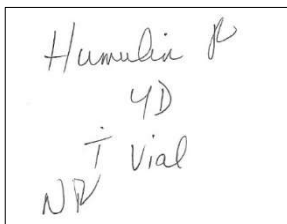 Humulin R
4D
i Vial
NR